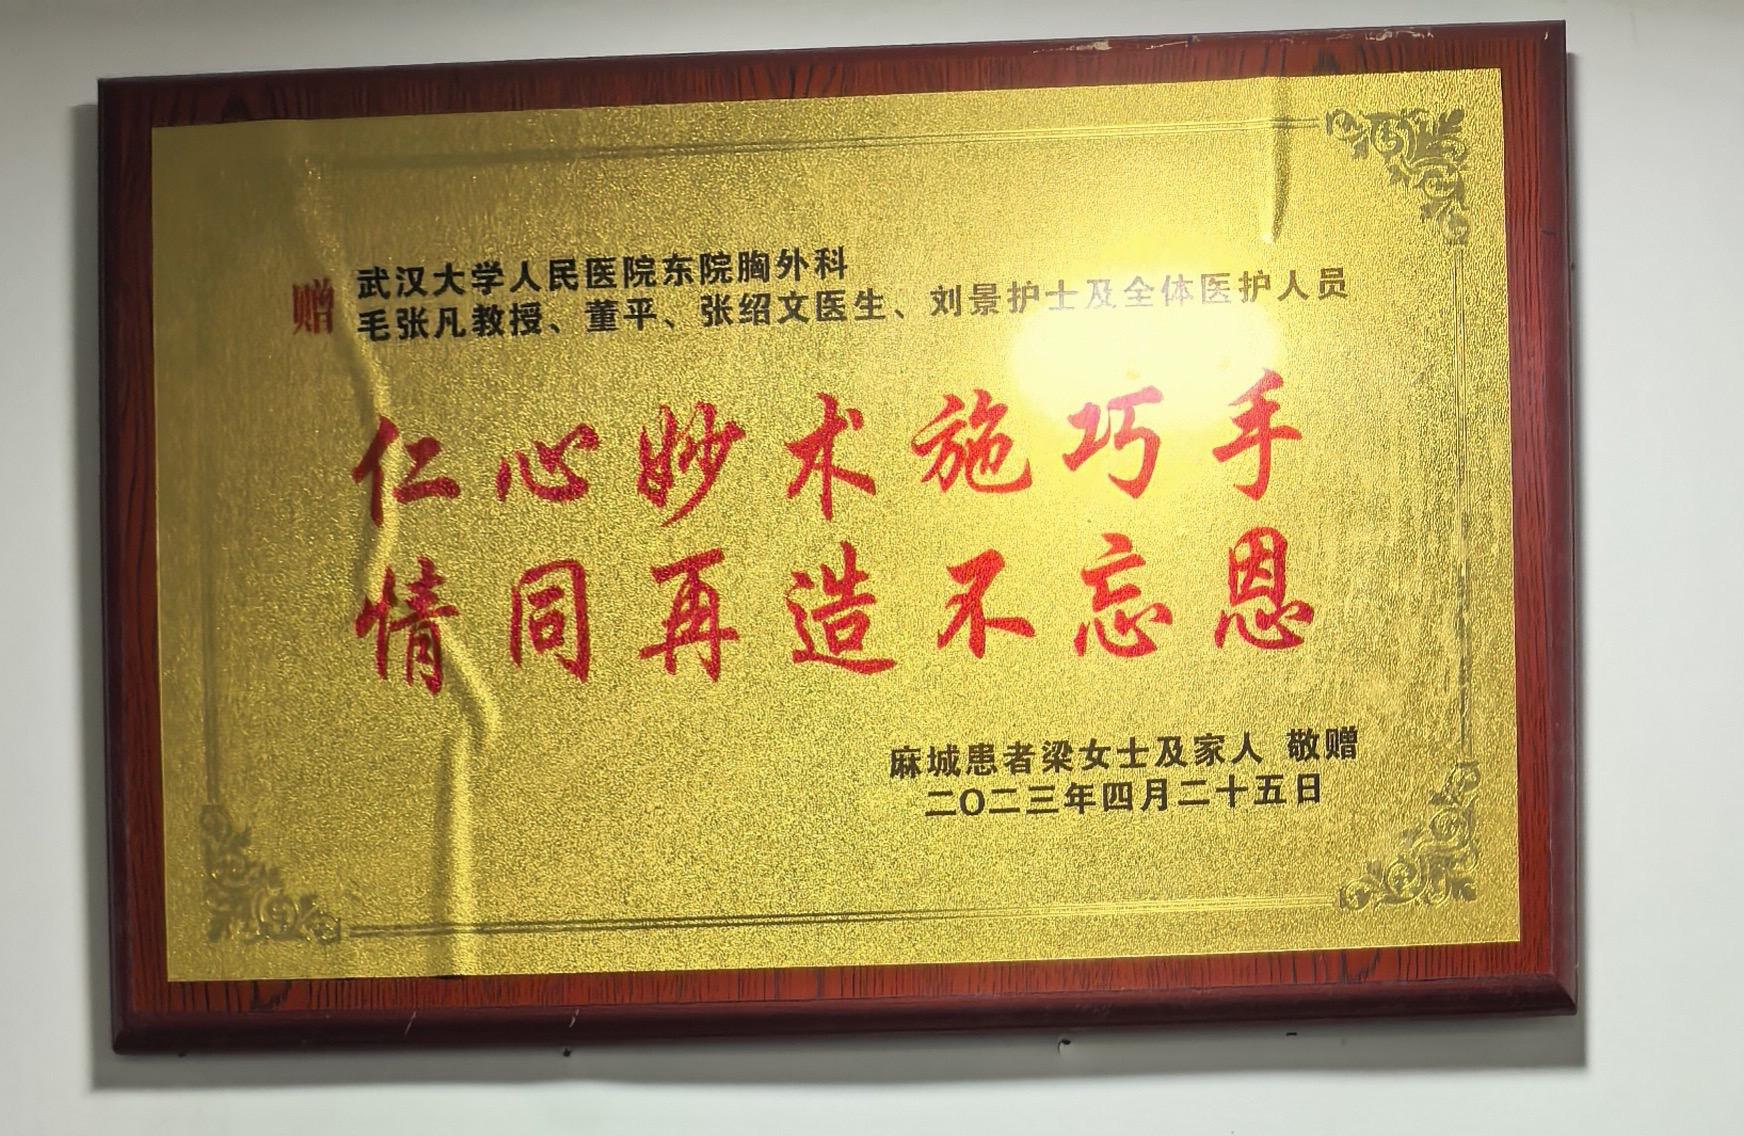 赠
武汉大学人民医院东院胸外科
毛张凡教授、董平、张绍文医生、刘景护士及全体医护人员
仁心妙术施巧手
情同再造不忘恩
麻城患者梁女士及家人 敬赠
二〇二三年四月二十五日